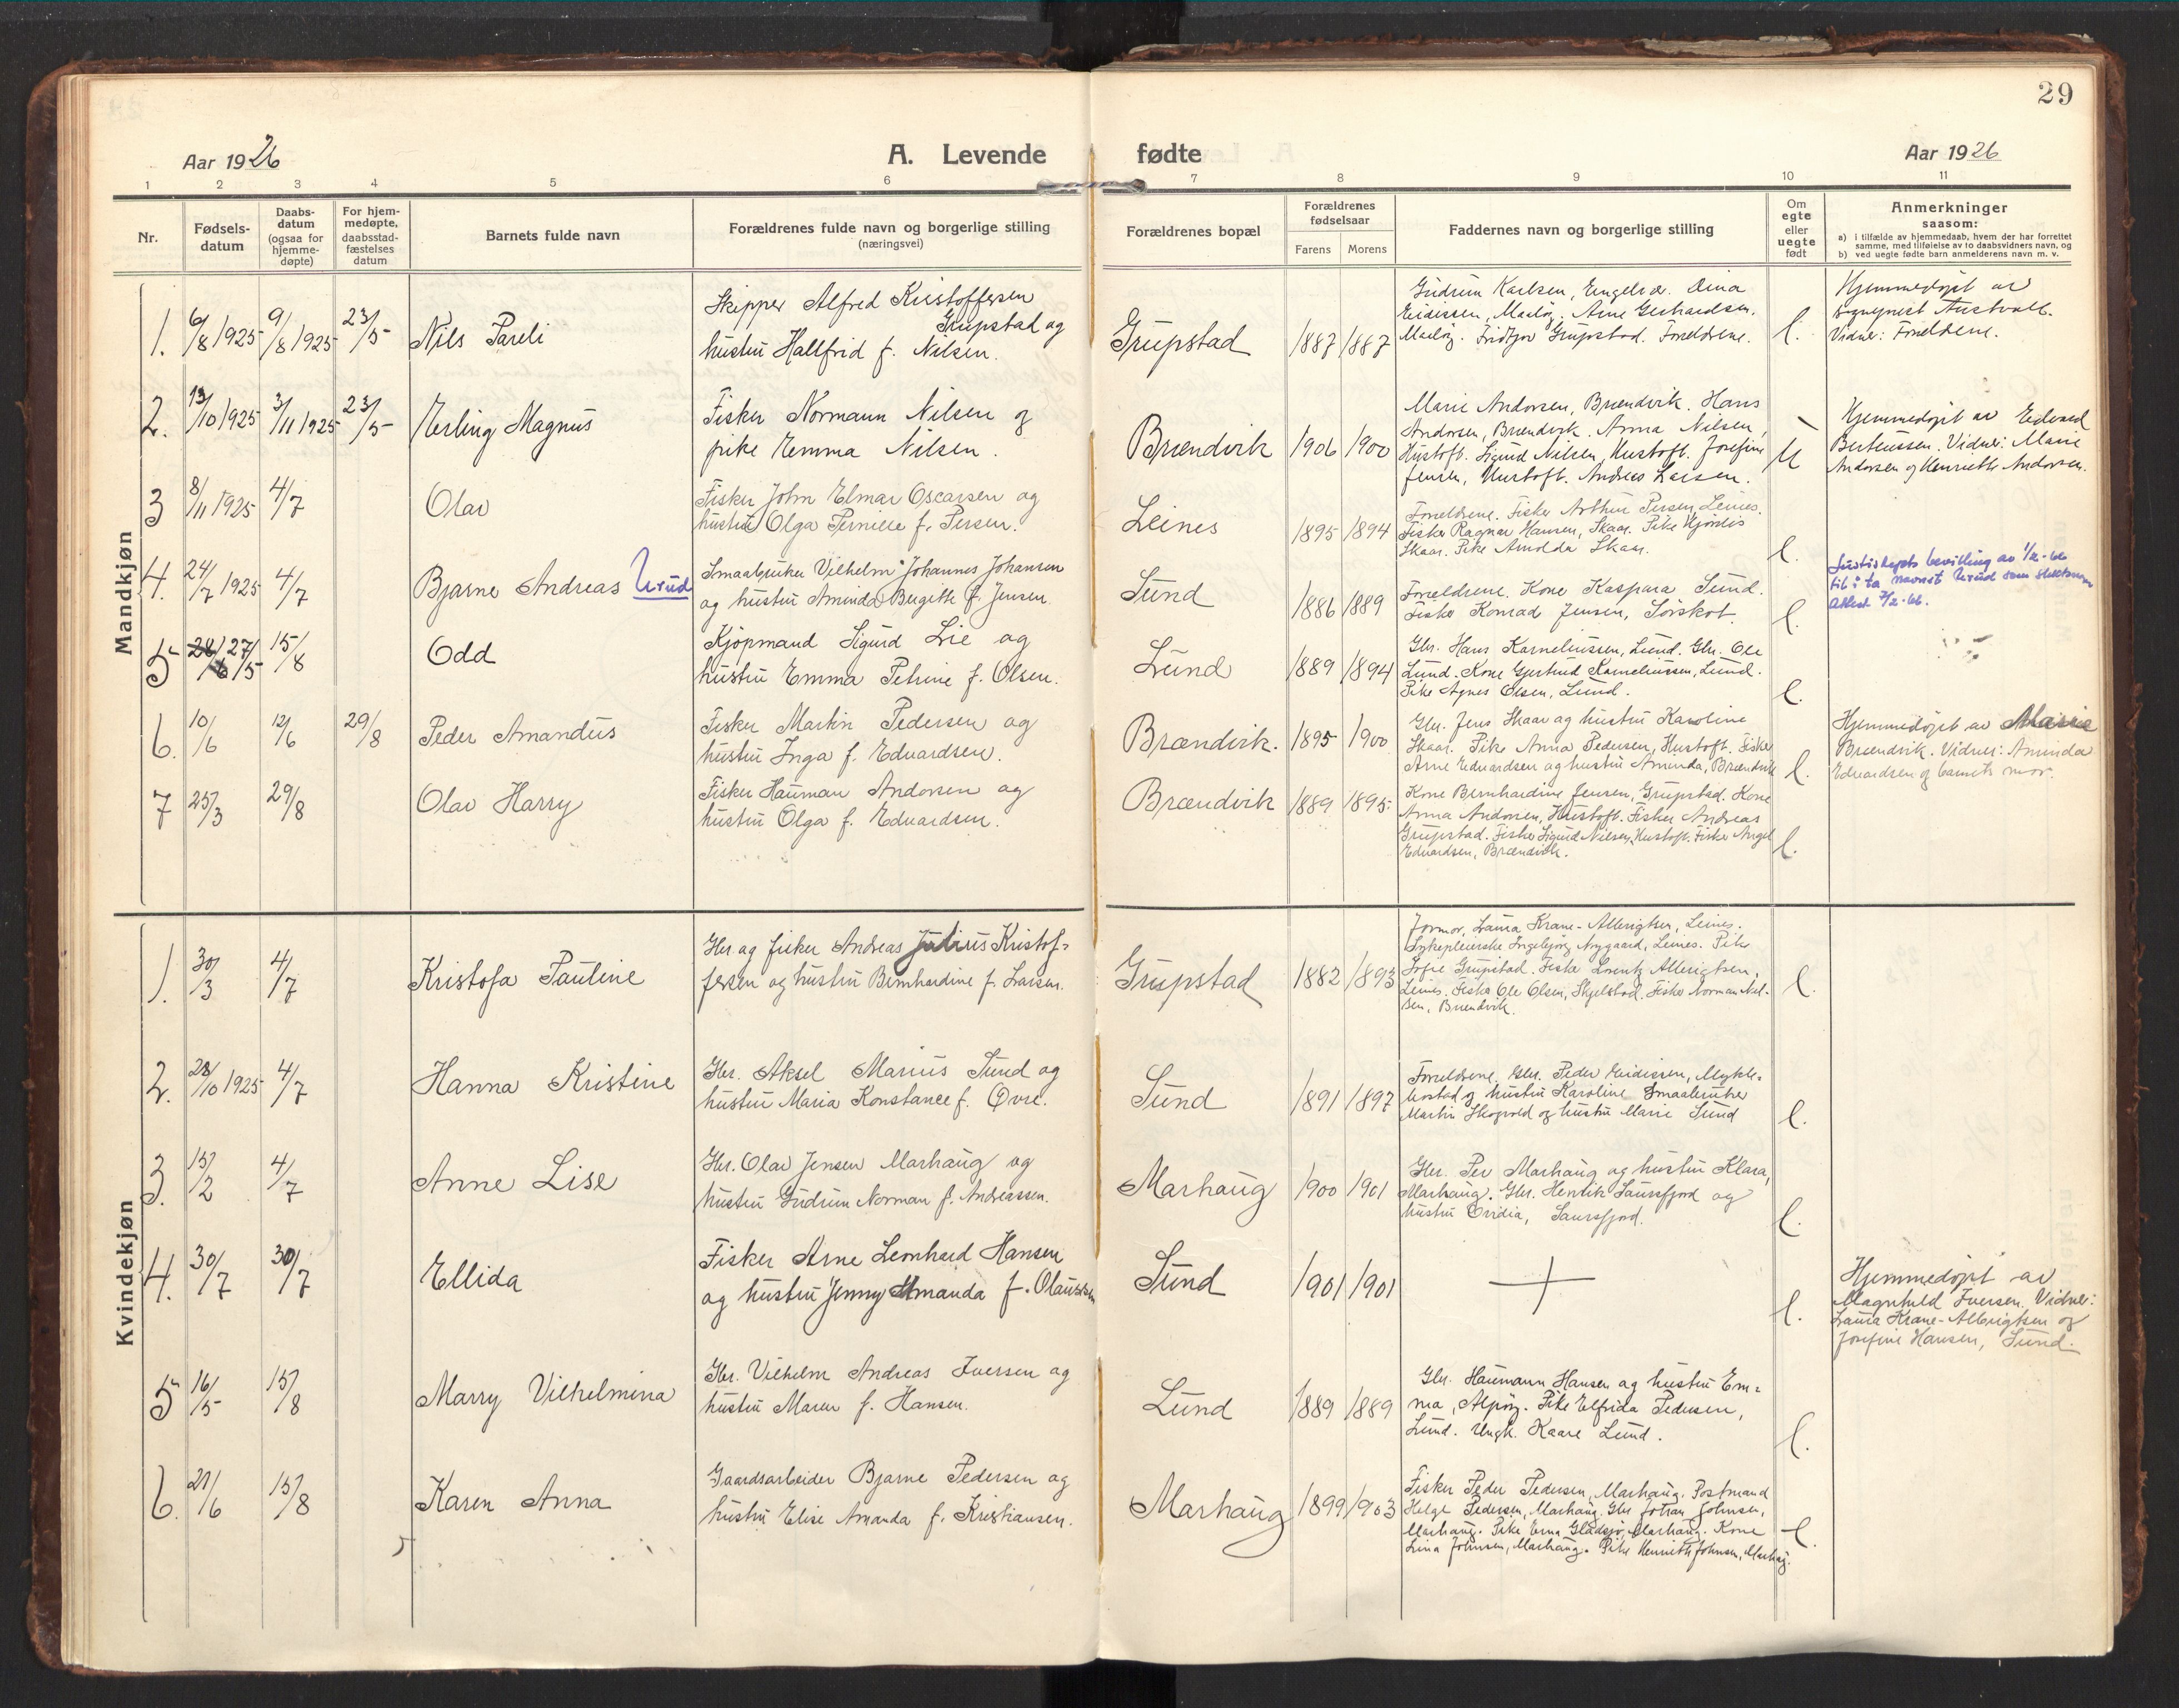 29
Aar 1926
A. Levende fødte
Aar 1926
1 2 3 4 5 6 7 8 9 10 11
Nr.
Fødsels-
datum
Daabs-
datum
(ogsaa for
hjemme-
døpte)
For hjem-
medøpte,
daabsstad-
fæstelses
datum
Barnets fulde navn
Forældrenes fulde navn og borgerlige stilling
(næringsvei)
Forældrenes bopæl
Forældrenes
fødselsaar
Farens Morens
Faddernes navn og borgerlige stilling
Om
egte
eller
uegte
født
Anmerkninger
saasom:
a) i tilfælde av hjemmedaab, hvem der har forrettet
samme, med tilføielse av to daabsvidners navn, og
b) ved uegte fødte barn anmelderens navn m. v.
Mandkjøn
1. 6/8 1925 9/8 1925 23/5 Nils Pareli
Skipper Alfred Kristoffersen
Grupstad og
hustru Hallfrid f. Nilsen.
Grupstad 1887 1887
Gudrun Karlsen, Engelvær. Dina
Eidissen, Maeløy. Arne Gerhardsen,
Maeløy. Fridtjov Grupstad. Foreldrene.
e.
Hjemmedøpt av
sogneprest
Vidner: Foreldrene.
2. 13/10 1925 3/11 1925 23/5 Erling Magnus
Fisker Normann Nilsen og
pike Emma Nilsen.
Brændvik 1906 1900
Marie Andorsen, Brændvik. Hans
Andorsen, Brændvik. Anna Nilsen,
Hustoft. Sigurd Nilsen, Hustoft. Josefine
Jensen, Hustoft. Andreas Larsen.
U
Hjemmedøpt av Edvard
Berteussen. Vidner: Marie
Andorsen og Henriette Andorsen.
3 8/11 1925 4/7 Olav
Fisker John Elmar Oscarsen og
hustru Olga Pernille f. Persen.
Leines 1895 1894
Foreldrene. Fisker Arthur Persen, Leines.
Fisker Ragnar Hansen, Skaar. Pike Hjørdis
Skaar. Pike Arnolda Skaar.
e.
4. 24/7 1925 4/7 Bjarne Andreas Urud
Smaabruker Vilhelm Johannes Johansen
og hustru Aminda Bergitte f. Jensen.
Sund 1886 1889
Foreldrene. Kone Kaspara Sund.
Fisker Konrad Jensen, Sørskot.
e.
Justisdepts bevilling av 1/2-66
til å ta navnet Urud som slektsnavn
Attest 7/2-66.
5 28/6 27/5 15/8 Odd
Kjøpmand Sigurd Lie og
hustru Emma Petrine f. Olsen.
Lund 1889 1894
Gbr. Hans Korneliussen, Lund. Gbr. Ole
Lund. Kone Gjertrud Korneliussen, Lund.
Pike Agnes Olsen, Lund.
e.
6. 10/6 12/6 29/8 Peder Amandus
Fisker Martin Pedersen og
hustru Inga f. Edvardsen.
Brændvik. 1895 1900
Gbr. Jens Skaar og hustru Karoline
Skaar. Pike Anna Pedersen, Hustoft. Fisker
Arne Edvardsen og hustru Aminda, Brændvik
e.
Hjemmedøpt av Marie
Brændvik. Vidner: Aminda
Edvardsen og barnets mor.
7 25/3 29/8 Olav Harry
Fisker Hauman Andorsen og
hustru Olga f. Edvardsen.
Brændvik 1889 1895
Kone Bernhardine Jensen, Grupstad. Kone
Anna Andorsen, Hustoft. Fisker Andreas
Grupstad. Fisker Sigurd Nilsen, Hustoft. Fisker Angel
Edvardsen, Brændvik.
e.
Kvindekjøn
1. 30/3 4/7 Kristofa Pauline
Gbr og fisker Andreas Julius Kristof-
fersen og hustru Bernhardine f. Larsen.
Grupstad 1882 1893
Jormor. Laura Krane-Albrigtsen, Leines.
Sykepleierske Ingebjørg Nygaard, Leines. Pike
Sofie Grupstad. Fisker Lorentz Albrigtsen,
Leines. Fisker Ole Olsen, Skjelstad. Fisker Norman Nil-
sen, Brændvik.
e.
2. 28/10 1925 4/7 Hanna Kristine
Gbr. Aksel Marius Sund og
hustru Maria Konstance f. Øvre.
Sund 1891 1897
Foreldrene. Gbr. Peder Eidissen, Mykle-
bostad og hustru Karoline. Smaabruker
Martin Skogvold og hustru Marie Sund
e.
3. 15/2 4/7 Anne Lise
Gbr. Olav Jensen Marhaug og
hustru Gudrun Norman f. Andreassen.
Marhaug 1900 1901
Gbr. Per Marhaug og hustru Klara,
Marhaug. Gbr. Henrik Saursfjord og
hustru Ovidia, Saursfjord.
e.
4. 30/7 30/7 Ellida
Fisker Arne Leonhard Hansen
og hustru Jenny Amanda f. Olaussen
Sund 1901 1901
e.
Hjemmedøpt av
Magnhild Iversen. Vidner:
Laura Krane-Albrigtsen og
Josefine Hansen, Sund.
5 16/5 15/8 Marry Vilhelmina
Gbr. Vilhelm Andreas Iversen og
hustru Maren f. Hansen.
Lund 1889 1889
Gbr. Haumann Hansen og hustru Em-
ma, Alpøy. Pike Elfrida Pedersen,
Lund. Ungk. Kaare Lund.
e.
6. 21/6 15/8 Karen Anna
Gaardsarbeider Bjarne Pedersen og
hustru Elise Amanda f. Kristiansen.
Marhaug 1899 1903
Fisker Peder Pedersen, Marhaug. Postmand
Helge Pedersen, Marhaug. Gbr Johan Johnsen,
Marhaug. Pike Erna Gladsjø, Marhaug. Kone
Lina Johnsen, Marhaug. Pike Henriette Johnsen, Marhaug.
e.